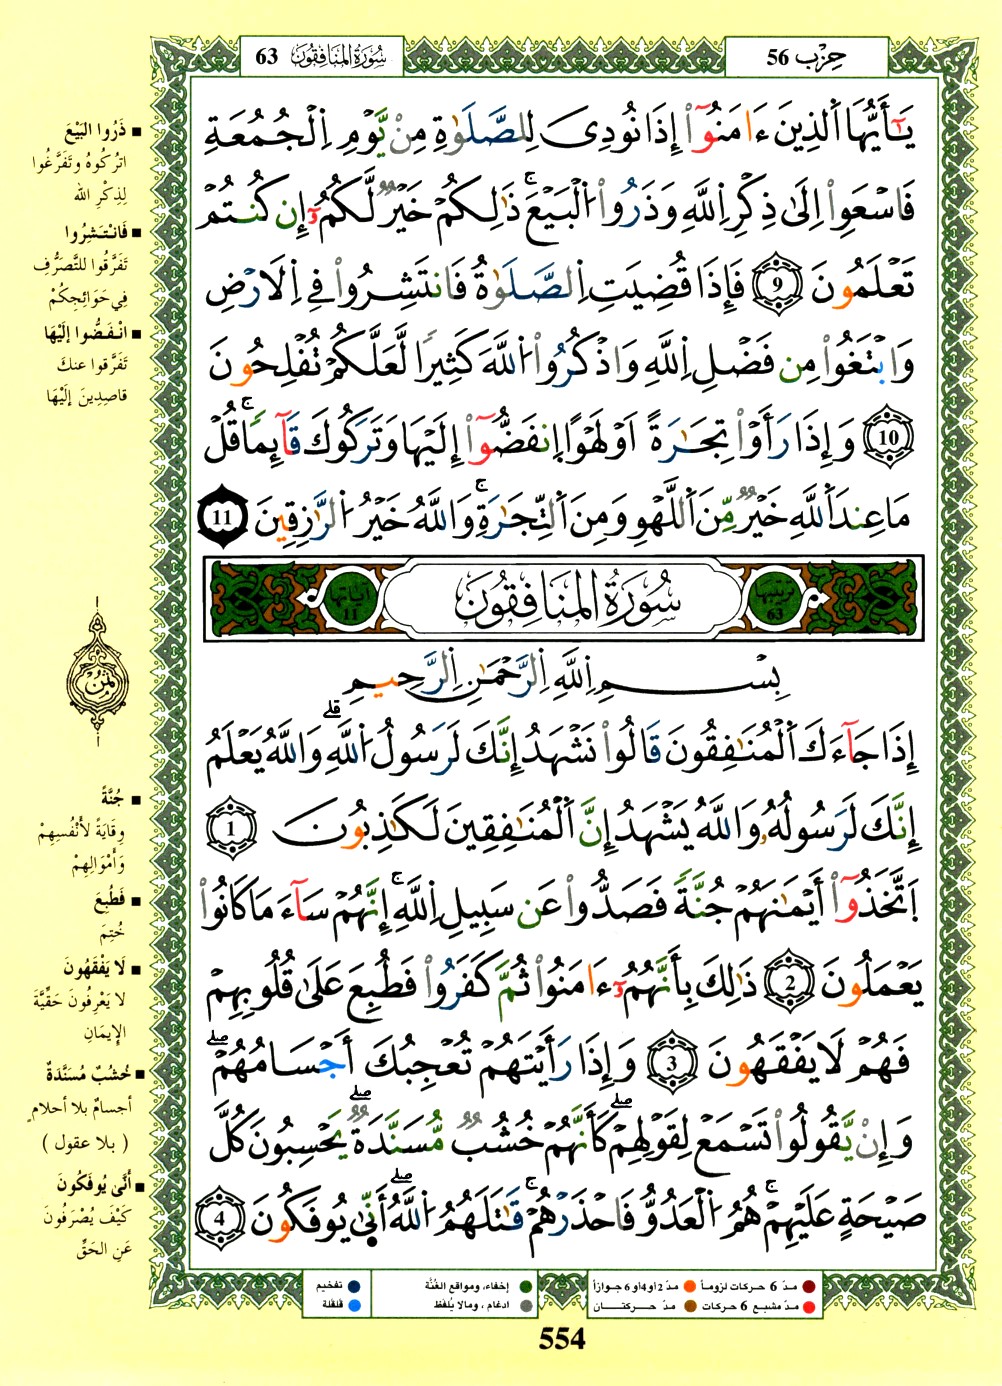 سُورَةُ المُنَافِقُون 63
حِزْب 56
يَٰٓأَيُّهَا اَ۬لذِينَ ءَامَنُوٓاْ إِذَا نُودِيَ لِلصَّلَوٰةِ مِنْ يَّوْمِ اِ۬لْجُمُعَةِ
فَاسْعَوِاْ اِلَىٰ ذِكْرِ اِ۬للَّهِ وَذَرُواْ اُ۬لْبَيْعَۚ ذَٰلِكُمْ خَيْرٞ لَّكُمُۥٓ إِن كُنتُمْ
تَعْلَمُونَ 9 فَإِذَا قُضِيَتِ اِ۬لصَّلَوٰةُ فَانتَشِرُواْ فِے اِ۬لَارْضِ
وَابْتَغُواْ مِن فَضْلِ اِ۬للَّهِ وَاذْكُرُواْ اُ۬للَّهَ كَثِيراٗ لَّعَلَّكُمْ تُفْلِحُونَ
10 وَإِذَا رَأَوْاْ تِجَٰرَةً اَوْ لَهْواً اِ۪نفَضُّوٓاْ إِلَيْهَا وَتَرَكُوكَ قَآئِماٗۚ قُلْ
مَا عِندَ اَ۬للَّهِ خَيْرٞ مِّنَ اَ۬للَّهْوِ وَمِنَ اَ۬لتِّجَٰرَةِۚ وَاللَّهُ خَيْرُ اُ۬لرَّٰزِقِينَ 11
ترتيبها 63
سُورَةُ المُنَافِقُون
آياتها 11
بِسْمِ اِ۬للَّهِ اِ۬لرَّحْمَٰنِ اِ۬لرَّحِيمِ
إِذَا جَآءَكَ اَ۬لْمُنَٰفِقُونَ قَالُواْ نَشْهَدُ إِنَّكَ لَرَسُولُ اُ۬للَّهِۖ وَاللَّهُ يَعْلَمُ
إِنَّكَ لَرَسُولُهُۥ وَاللَّهُ يَشْهَدُ إِنَّ اَ۬لْمُنَٰفِقِينَ لَكَٰذِبُونَ 1
اَ۪تَّخَذُوٓاْ أَيْمَٰنَهُمْ جُنَّةٗ فَصَدُّواْ عَن سَبِيلِ اِ۬للَّهِۚ إِنَّهُمْ سَآءَ مَا كَانُواْ
يَعْمَلُونَ 2 ذَٰلِكَ بِأَنَّهُمُۥٓ ءَامَنُواْ ثُمَّ كَفَرُواْ فَطُبِعَ عَلَىٰ قُلُوبِهِمْ
فَهُمْ لَا يَفْقَهُونَ 3 وَإِذَا رَأَيْتَهُمْ تُعْجِبُكَ أَجْسَامُهُمْۖ
وَإِنْ يَّقُولُواْ تَسْمَعْ لِقَوْلِهِمْۖ كَأَنَّهُمْ خُشُبٞ مُّسَنَّدَةٞۖ يَحْسِبُونَ كُلَّ
صَيْحَةٍ عَلَيْهِمْۚ هُمُ اُ۬لْعَدُوُّ فَاحْذَرْهُمْۚ قَٰتَلَهُمُ اُ۬للَّهُۖ أَنَّىٰ يُوفَكُونَ 4
ذَرُوا البَيْعَ
اتركُوهُ وتَفَرَّغُوا
لِذِكْرِ الله
فَانْتَشِرُوا
تَفَرَّقُوا للتَّصَرُّفِ
فِي حَوَائِجِكُمْ
انْفَضُّوا إِلَيْهَا
تَفَرَّقوا عنكَ
قاصِدِينَ إِلَيْهَا
ثمن
جُنَّةً
وِقَايَةً لأَنْفُسِهِمْ
وَأَمْوَالِهِمْ
فَطُبِعَ
خُتِمَ
لَا يَفْقَهُونَ
لا يَعْرِفُونَ حَقِّيَّةَ
الإِيمَانِ
خُشُبٌ مُسَنَّدَةٌ
أجسامٌ بلا أحلام
( بلا عقول )
أَنَّىٰ يُوفَكُونَ
كَيْفَ يُصْرَفُونَ
عَنِ الحَقِّ
مدّ 6 حركات لزوماً
مدّ 2 أو 4 أو 6 جوازاً
مدّ مشبع 6 حركات
مدّ حركتان
إخفاء، ومواقع الغُنَّة
ادغام ، ومالا يُلفَظ
تفخيم
قلقلة
554